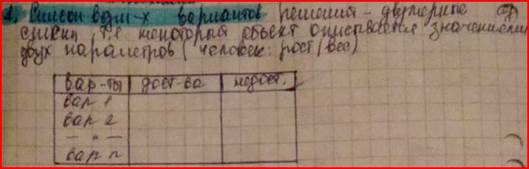 1. Список возм-х вариантов решений - двумерные
списки, т.е. некоторый объект описывается значениями
двух параметров (человек: рост/вес)
вар-ты | дост-ва | недост.
вар 1
вар 2
— " —
вар n